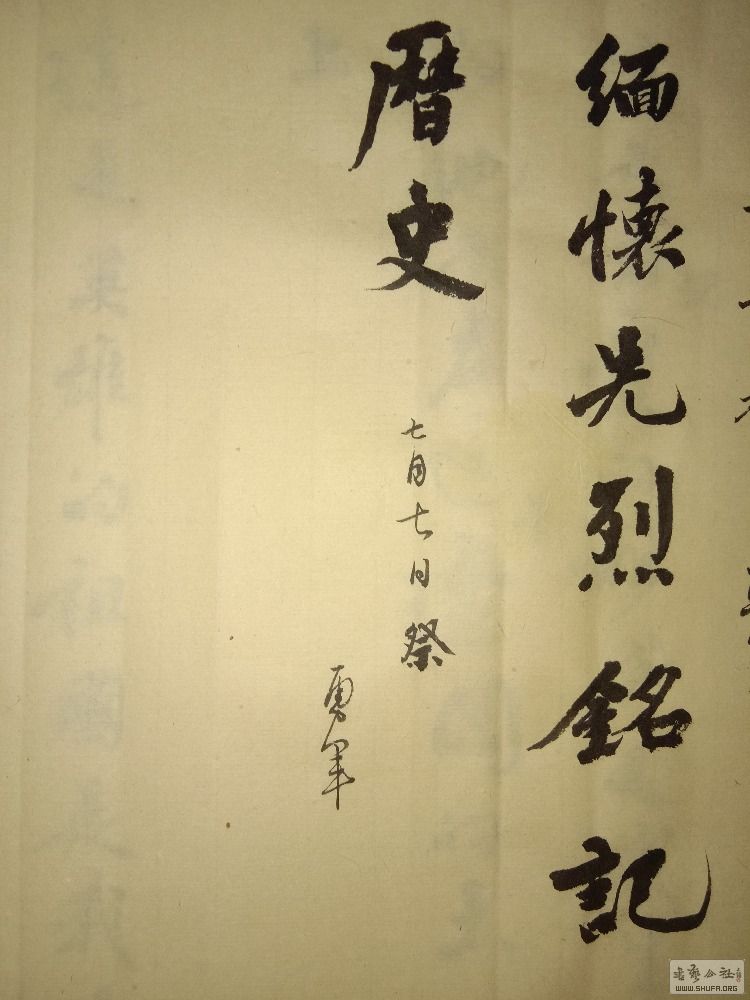 缅懷先烈銘記
曆史
七月七日祭
勇军
书艺公社
WWW.SHUFA.ORG